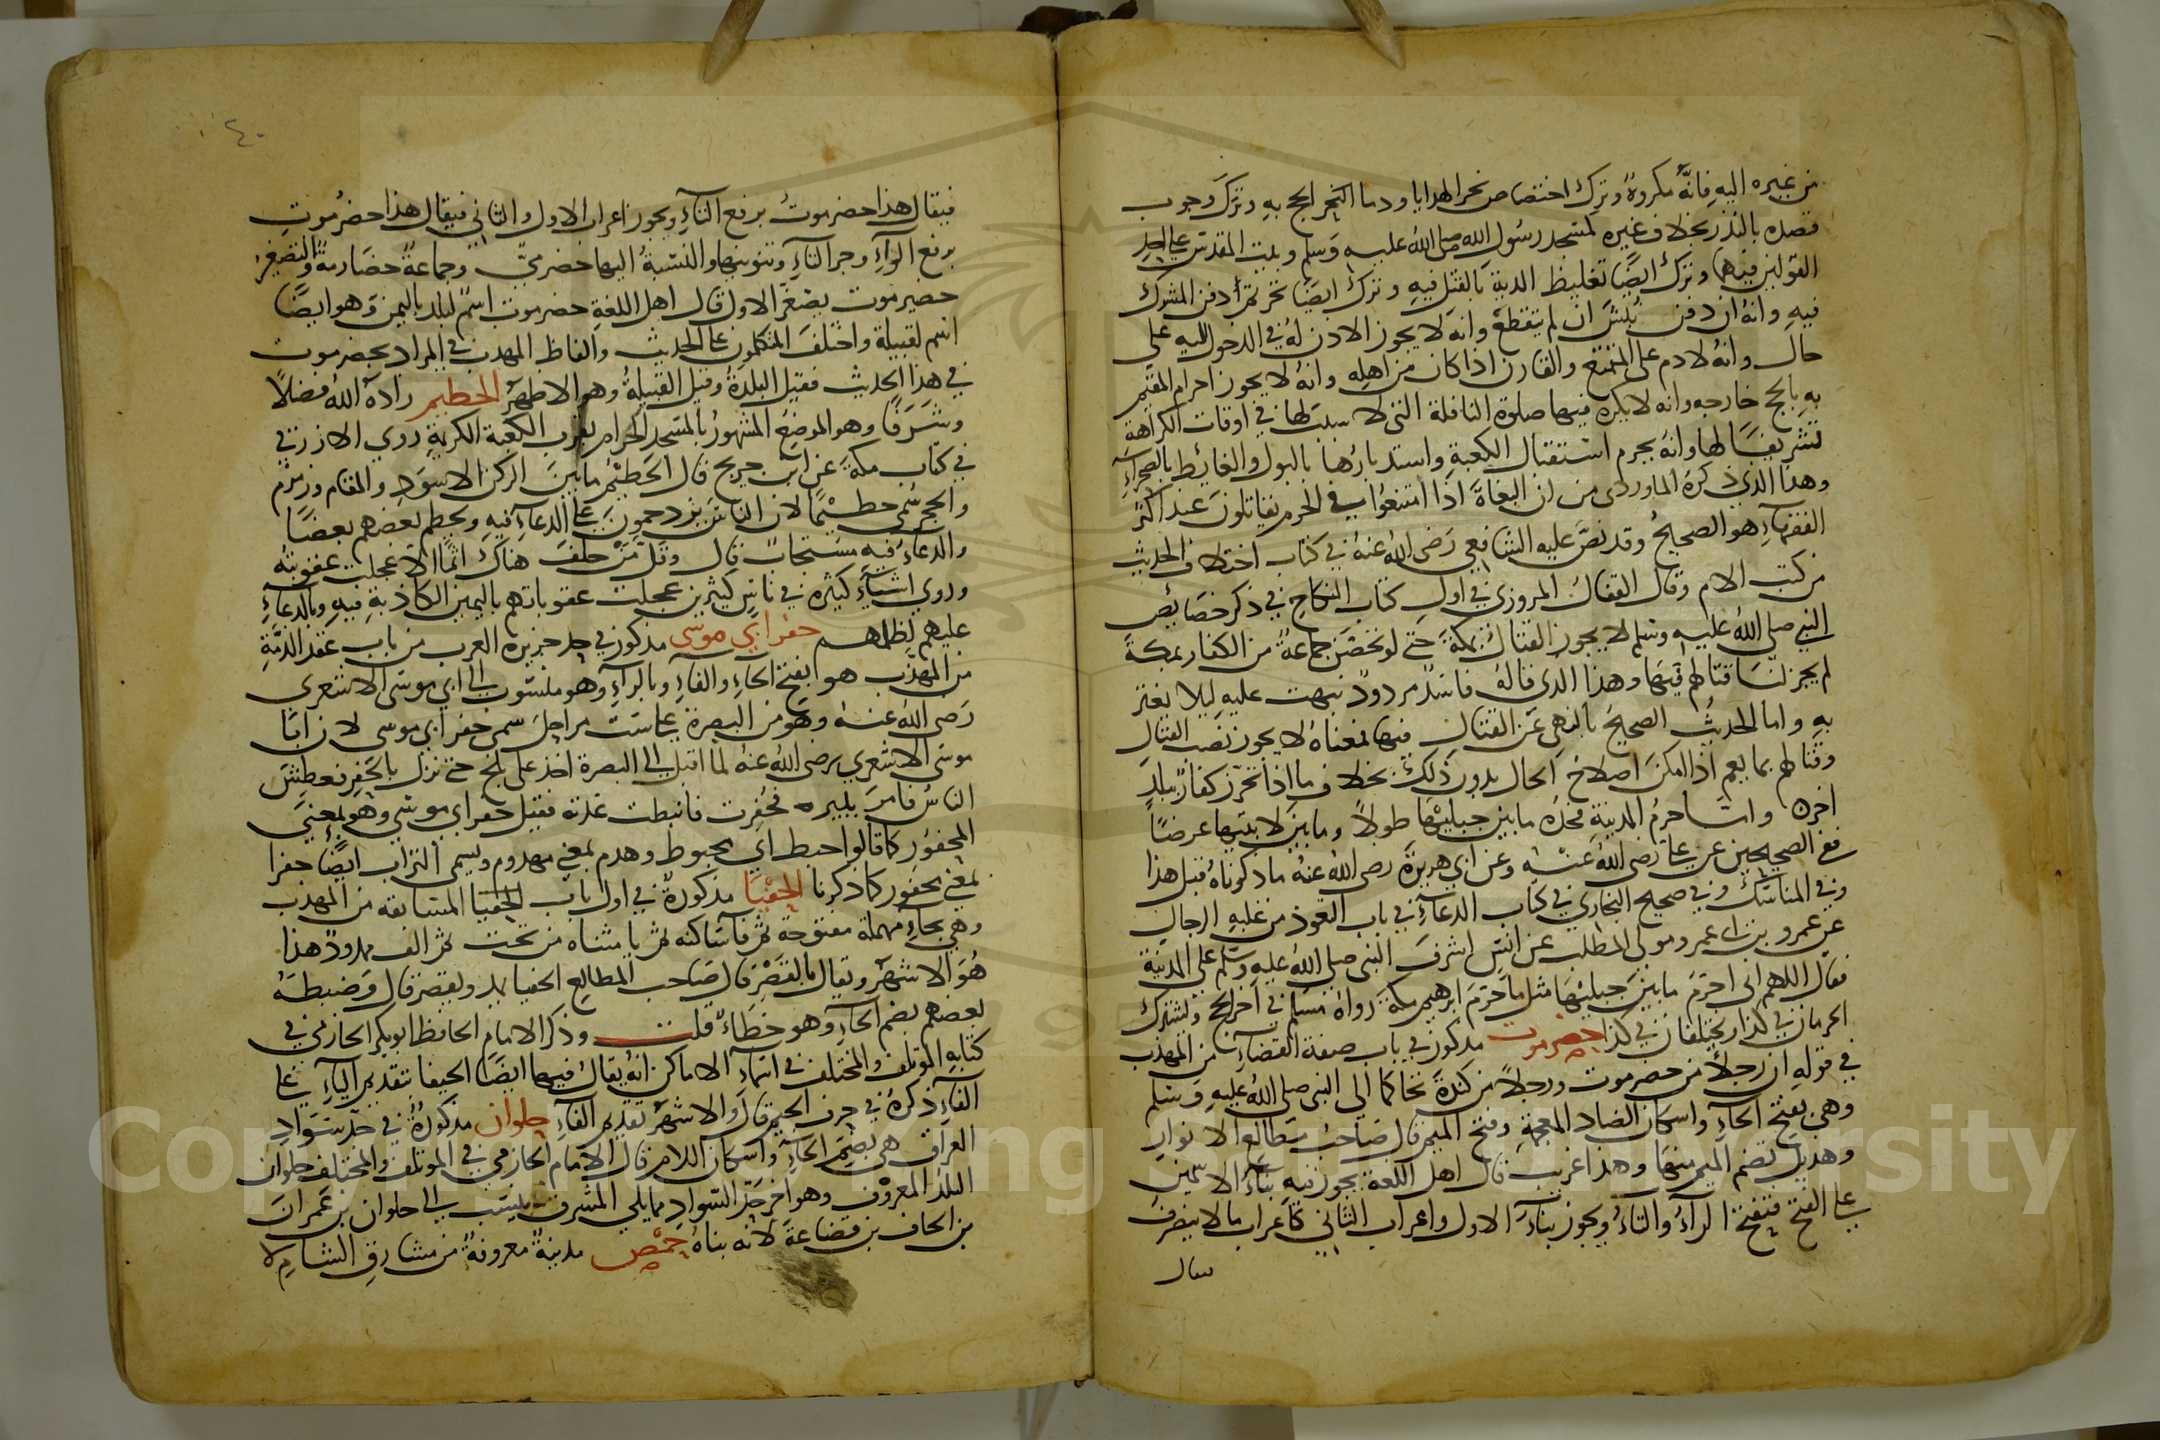 من غيره اليه فانه مكروه وترك اختصاص نحر الهدايا ودما الحج به وترك وجوب
قصده بالنذر بخلاف غيره لمسجد رسول الله صلى الله عليه وسلم وبيت المقدس على احد
القولين فيهما وترك ايضا تغليظ الدية بالقتل فيه وترك ايضا تحريم دفن المشرك
فيه وانه ان دفن نبش ان لم يتقطع وانه لا يجوز الاذن له في الدخول اليه على
حال وانه لا دم على المتمتع والقارن اذا كان من اهله وانه لا يجوز احرام المقيم
به بالحج خارجه وانه لا يكره فيها صلوة النافلة التي لا سبب لها في اوقات الكراهة
تشريفا لها وانه يحرم استقبال الكعبة واستدبارها بالبول والغائط بالصحراء
وهذا الذي ذكره الماوردي من ان البغاة اذا امتنعوا في الحرم يقاتلون عند اكثر
الفقهاء هو الصحيح وقد نص عليه الشافعي رضى الله عنه في كتاب اختلاف الحديث
من كتب الام وقال القفال المروزي في اول كتاب النكاح في ذكر خصائص
النبي صلى الله عليه وسلم لا يجوز القتال بمكة حتى لو تحصن جماعة من الكفار بمكة
لم يجز لنا قتالهم فيها وهذا الذي قاله فاسد مردود نبهت عليه ليلا يغتر
به واما الحديث الصحيح بالنهي عن القتال فيها فمعناه لا يجوز نصب القتال
وقتالهم بما يعم اذا امكن اصلاح الحال بدون ذلك بخلاف ما اذا تحرز كفار ببلد
اخر واما حرم المدينة فحده ما بين جبليها طولا وما بين لابتيها عرضا
ففي الصحيحين عن علي رضى الله عنه وعن ابي هريرة رضى الله عنه ما ذكرناه قبل هذا
وفي المناسك وفي صحيح البخاري في كتاب الدعاء في باب التعوذ من غلبة الرجال
عن عمرو بن ابي عمرو مولى المطلب عن انس اشرف النبي صلى الله عليه وسلم على المدينة
فقال اللهم اني احرم ما بين جبليها مثل ما حرم ابرهيم مكة رواه مسلم في اخر الحج ويشترك
الحرمان في كذا ويختلفان في كذا حضرموت مذكور في باب صفة القضاء من المهذب
في قوله ان رجلا من حضرموت ورجلا من كندة تحاكما الي النبي صلى الله عليه وسلم
وهي بفتح الحاء واسكان الضاد المعجمة وفتح الميم قال صاحب مطالع الانوار
وهذيل تضم الميم منها وهذا غريب قال اهل اللغة يجوز فيه بناء الاسمين
على الفتح فتفتح الراء والتاء ويجوز بناء الاول واعراب الثاني كاعراب ما لا ينصرف
فيقال هذا حضرموت برفع التاء ويجوز اعراب الاول والثاني فيقال هذا حضرموت
برفع الراء وجر التاء وتنوينها والنسبة اليها حضرمي وجماعة حضارمة والتصغير
حضيرموت بصغر الاول قال اهل اللغة حضرموت اسم لبلد باليمن وهو ايضا
اسم لقبيلة واختلف المتكلمون على الحديث والفاظ المهذب في المراد بحضرموت
في هذا الحديث فقيل البلدة وقيل القبيلة وهو الاظهر الحطيم زاده الله فضلا
وشرفا وهو الموضع المشهور بالمسجد الحرام بقرب الكعبة الكريمة روي الازرقي
في كتاب مكة عن ابن جريج قال الحطيم ما بين الركن الاسود والمقام وزمزم
والحجر سمي حطيما لان الناس يزدحمون على الدعاء فيه ويحطم بعضهم بعضا
والدعاء فيه مستجاب قال وقل من حلف هناك اثما الا عجلت عقوبته
وروي اشياء كثيرة في ناس كثيرين عجلت عقوباتهم باليمين الكاذبة فيه وبالدعاء
عليهم لظلمهم حفر ابي موسى مذكور في حد جزيرة العرب من باب عقد الذمة
من المهذب هو بفتح الحاء والفاء وبالراء وهو منسوب الى ابي موسى الاشعري
رضى الله عنه وهو من البصرة على ست مراحل سمي حفر ابي موسى لان ابا
موسى الاشعري رضى الله عنه لما اقبل الى البصرة اخذ على فلج حتى نزل بالحفر فعطش
الناس فامر ببيره فحفرت فانبطت عذبة فقيل حفر ابي موسى وهو بمعنى
المحفور كما قالوا حبط اي محبوط وهدم بمعني مهدوم ويسمى التراب ايضا حفرا
بمعني محفور كما ذكرنا الحفيا مذكورة في اول باب المسابقة من المهذب
وهي بحاء مهملة مفتوحة ثم فا ساكنة ثم يا مثناه من تحت ثم الف ممدود هذا
هو الاشهر ويقال بالقصر قال صاحب المطالع الحفيا يمد ويقصر قال وضبطه
بعضهم بضم الحاء وهو خطاء قلت وذكر الامام الحافظ ابو بكر الحازمي في
كتابه المؤتلف والمختلف في اسماء الاماكن انه يقال فيها ايضا الحيفا بتقديم الياء على
الفاء ذكره في حرف الجيم قال والاشهر تقديم الفاء حلوان مذكورة في حد سواد
العراق هي بضم الحاء واسكان اللام قال الامام الحازمي في المؤتلف والمختلف حلوان
البلد المعروف وهو اخر حد السواد مما يلي المشرق ينسب الى حلوان بن عمران
بن الحاف بن قضاعة لانه بناه حمص مدينة معروفة من مشارق الشام لا
Copyright © King Saud University